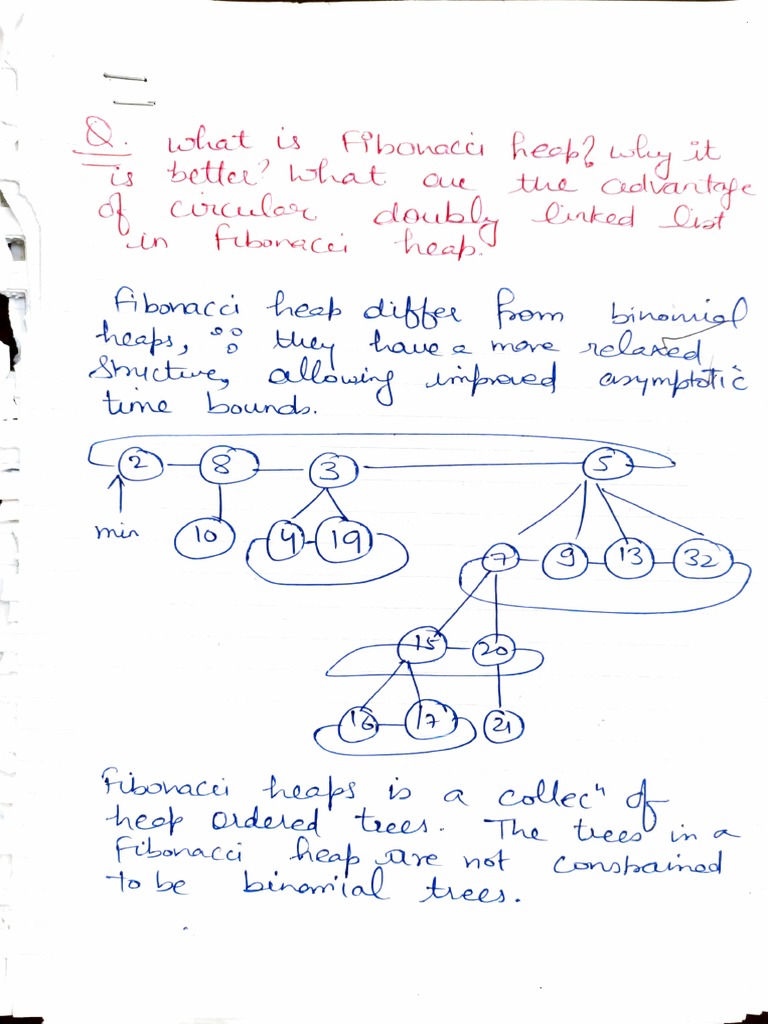 Q. What is Fibonacci heap? Why it
is better? What are the advantage
of circular doubly linked list
in Fibonacci heap.
Fibonacci heap differ from binomial
heaps, ∵ they have a more relaxed
structure, allowing improved asymptotic
time bounds.
2 8 3 5
min 10 4 19 7 9 13 32
15 20
16 17 21
Fibonacci heaps is a collecⁿ of
heap ordered trees. The trees in a
Fibonacci heap are not constrained
to be binomial trees.